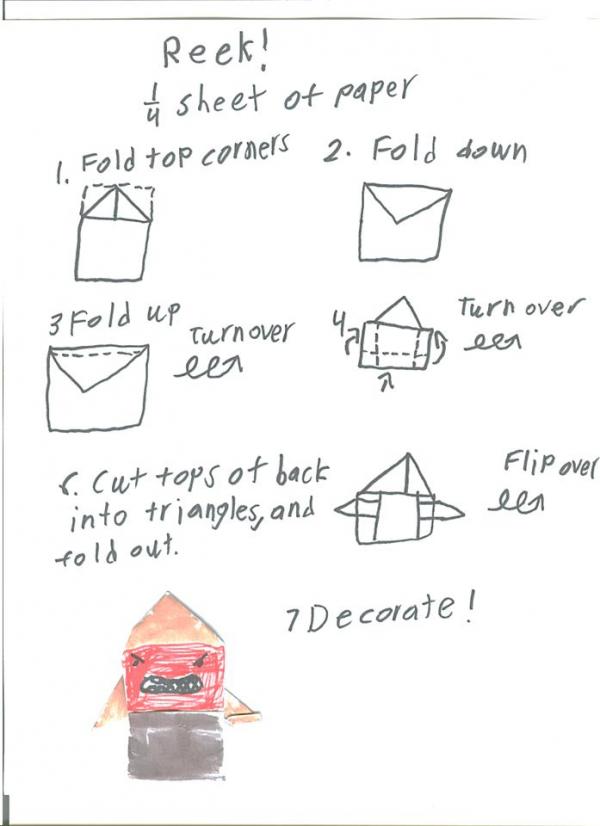 Reek!
1/4 sheet of paper
1. Fold top corners
2. Fold down
3 Fold up
Turn over
4
Turn over
6. Cut tops of back
into triangles, and
fold out.
Flip over
7 Decorate!